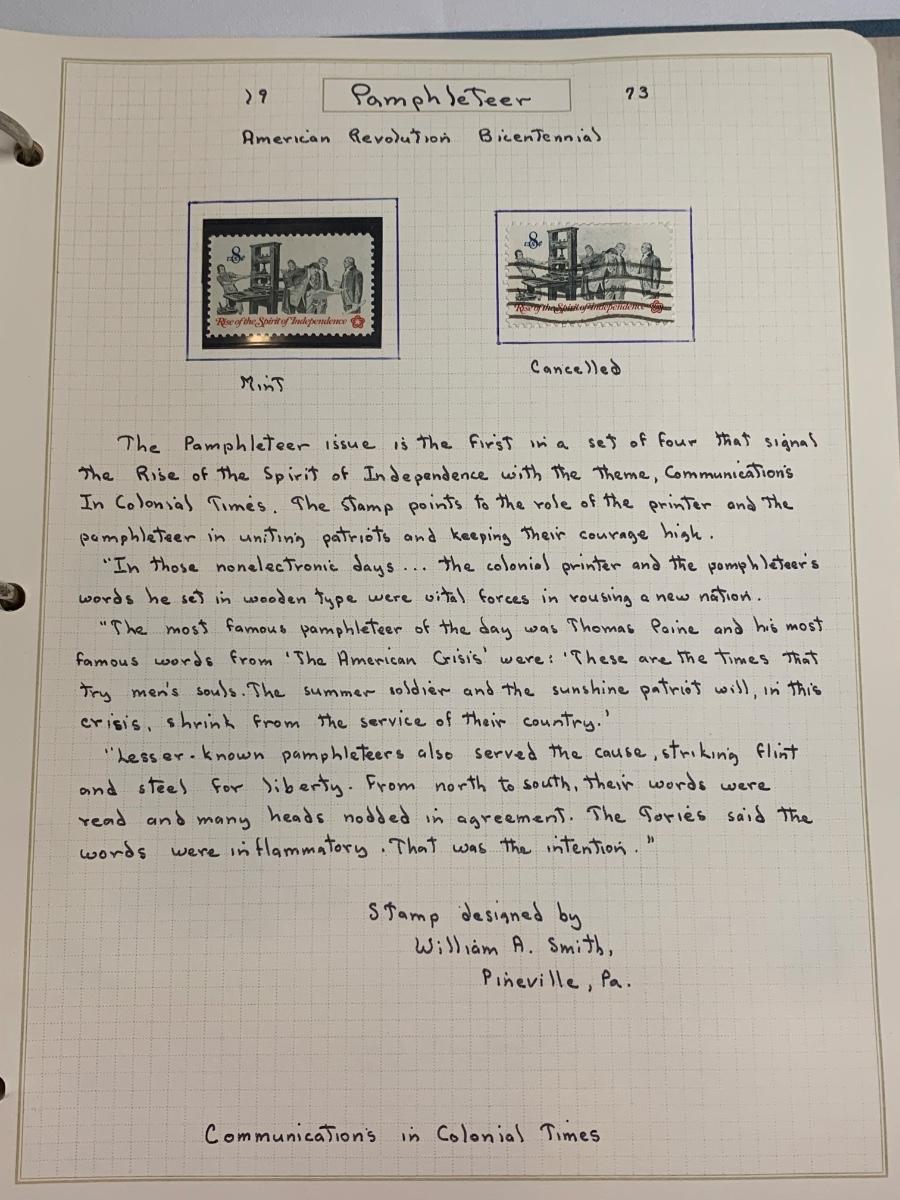 19 Pamphleteer 73
American Revolution Bicentennial
8
US c
Rise of the Spirit of Independence
8
US c
Rise of the Spirit of Independence
Mint
Cancelled
The Pamphleteer issue is the first in a set of four that signal
the Rise of the Spirit of Independence with the theme, Communications
In Colonial Times. The stamp points to the role of the printer and the
pamphleteer in uniting patriots and keeping their courage high.
"In those nonelectronic days... the colonial printer and the pamphleteer's
words he set in wooden type were vital forces in rousing a new nation.
"The most famous pamphleteer of the day was Thomas Paine and his most
famous words from 'The American Crisis' were: 'These are the times that
try men's souls. The summer soldier and the sunshine patriot will, in this
crisis, shrink from the service of their country.'
"Lesser-known pamphleteers also served the cause, striking flint
and steel for liberty. From north to south, their words were
read and many heads nodded in agreement. The Tories said the
words were inflammatory. That was the intention."
Stamp designed by
William A. Smith,
Pineville, Pa.
Communications in Colonial Times